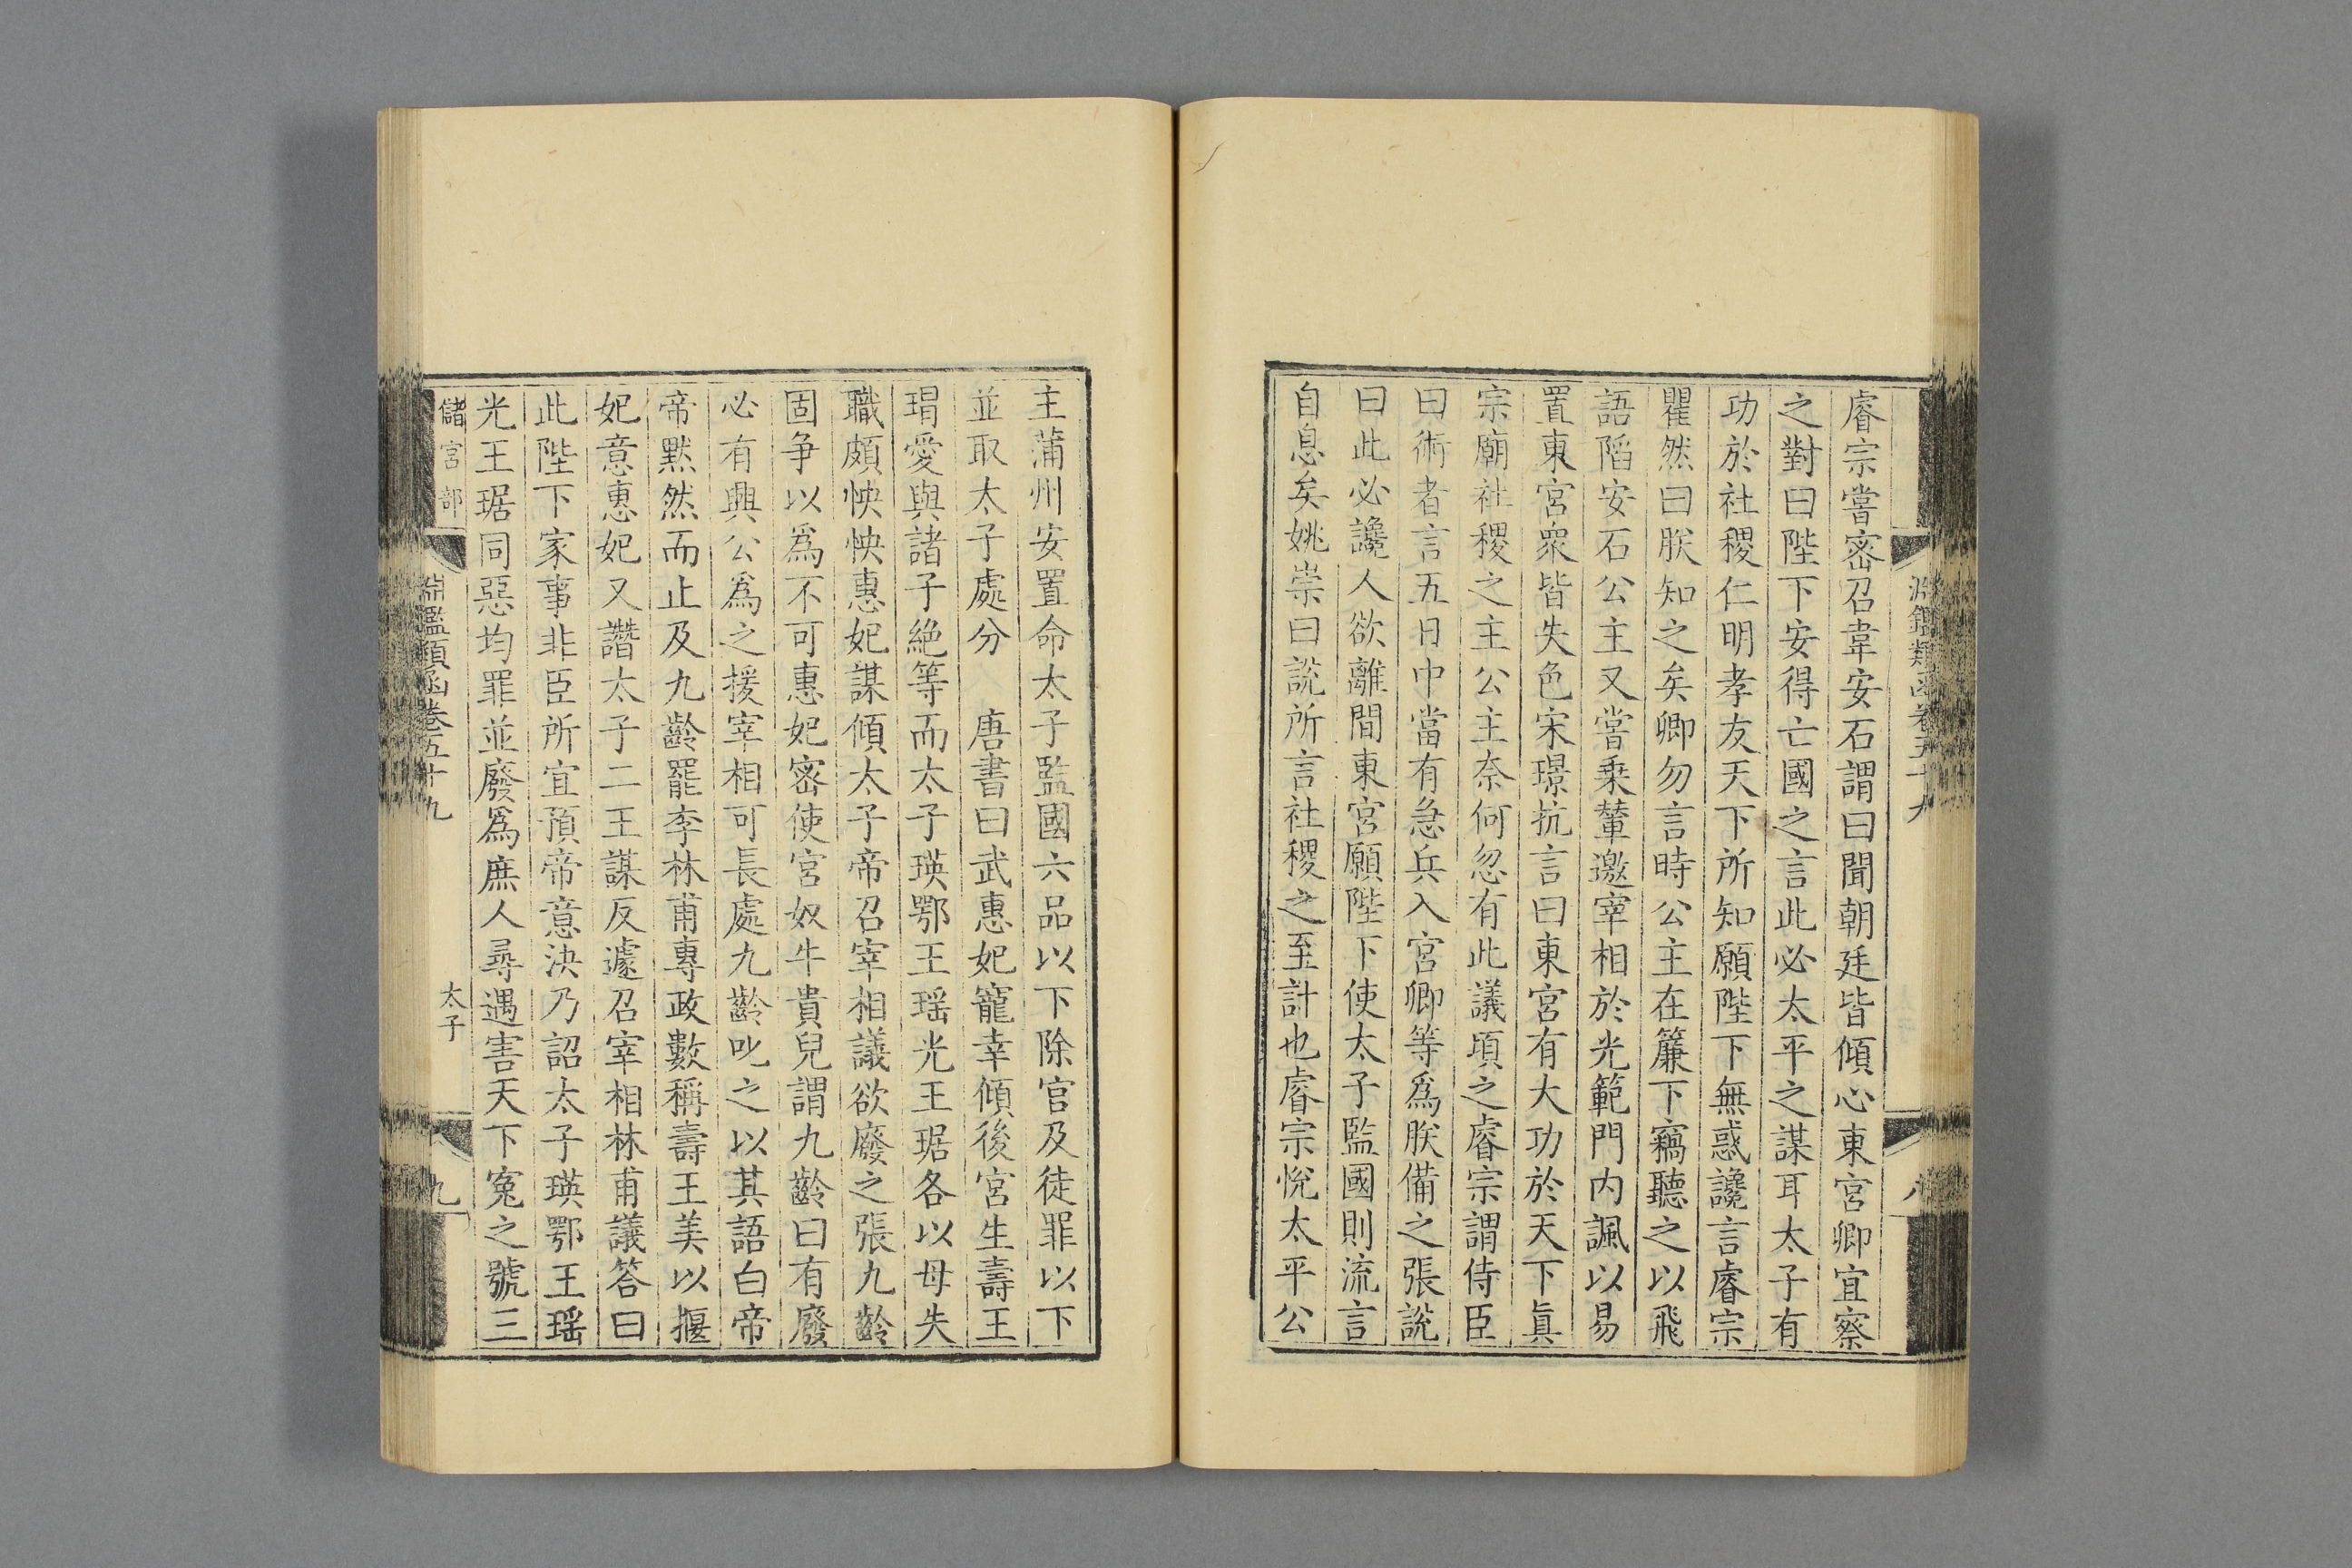 淵鑑類函卷五十九
八
睿宗嘗密召韋安石謂曰聞朝廷皆傾心東宮卿宜察
之對曰陛下安得亡國之言此必太平之謀耳太子有
功於社稷仁明孝友天下所知願陛下無惑讒言睿宗
瞿然曰朕知之矣卿勿言時公主在簾下竊聽之以飛
語陷安石公主又嘗乗輦邀宰相於光範門内諷以易
置東宮衆皆失色宋璟抗言曰東宮有大功於天下眞
宗廟社稷之主公主奈何忽有此議頃之睿宗謂侍臣
曰術者言五日中當有急兵入宮卿等爲朕備之張說
曰此必讒人欲離間東宮願陛下使太子監國則流言
自息矣姚崇曰説所言社稷之至計也睿宗悅太平公
主蒲州安置命太子監國六品以下除官及徒罪以下
並取太子處分　唐書曰武惠妃寵幸傾後宮生壽王
瑁愛與諸子絶等而太子瑛鄂王瑶光王琚各以母失
職頗怏怏惠妃謀傾太子帝召宰相議欲廢之張九齡
固争以爲不可惠妃密使宮奴牛貴兒謂九齡曰有廢
必有興公爲之援宰相可長處九齡叱之以其語白帝
帝黙然而止及九齡罷李林甫專政數稱壽王美以揠
妃意惠妃又譖太子二王謀反遽召宰相林甫議答曰
此陛下家事非臣所宜預帝意決乃詔太子瑛鄂王瑶
光王琚同惡均罪並廢爲庶人尋遇害天下寃之號三
儲宮部
淵鑑類函卷五十九
太子
九